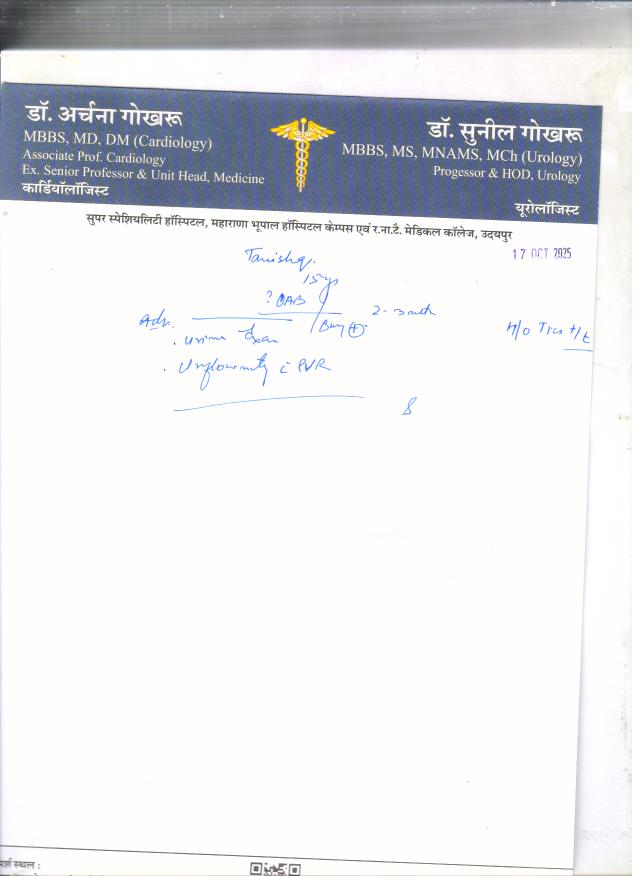 डॉ. अर्चना गोखरू
MBBS, MD, DM (Cardiology)
Associate Prof. Cardiology
Ex. Senior Professor & Unit Head, Medicine
कार्डियॉलॉजिस्ट
डॉ. सुनील गोखरू
MBBS, MS, MNAMS, MCh (Urology)
Progessor & HOD, Urology
यूरोलॉजिस्ट
सुपर स्पेशियलिटी हॉस्पिटल, महाराणा भूपाल हॉस्पिटल केम्पस एवं र.ना.टै. मेडिकल कॉलेज, उदयपुर
17 OCT 2025
Tanishq.
15 ys
? OAB
2-3 mth
Adv.
H/O
. Urine Exam
. Uroflowmetry c̄ PVR
स्थल :